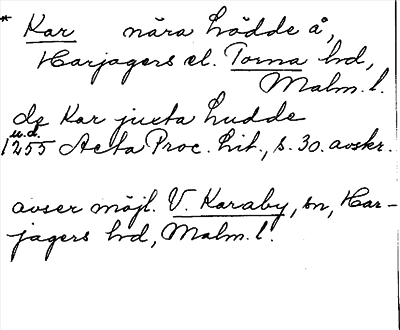 * Kar nära Lödde å,
Harjagers el. Torna hd,
Malm. l.
de Kar juxta hudde
u.d.
1255 Acta Proc. Lit., s. 30. avskr.
avser möjl. V. Karaby, sn, Har-
jagers hd, Malm. l.